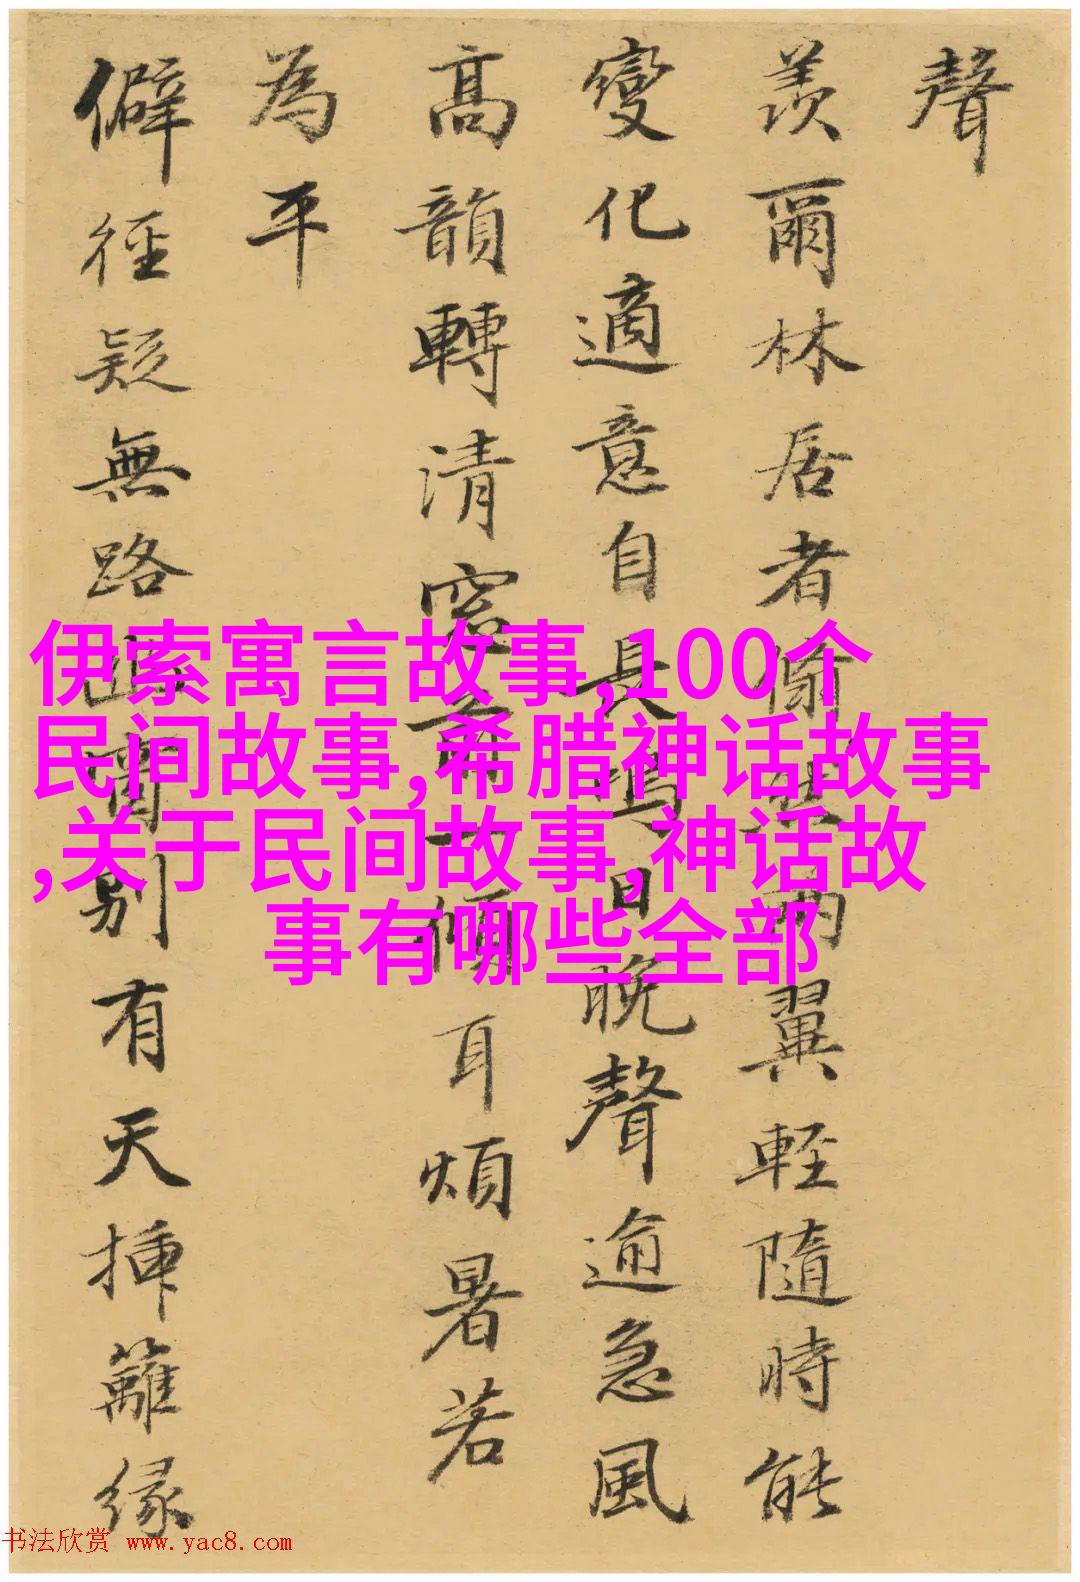 聲
羨爾林居者翛然兩翼輕隨時能
變化適意自長鳴日晚聲逾急風
高韻轉清窓前一傾耳煩暑若
為平
僻徑疑無路幽齋別有天插籬緣
伊索寓言故事,100个
民间故事,希腊神话故事
,关于民间故事,神话故
事有哪些全部
书法欣赏 www.yac8.com